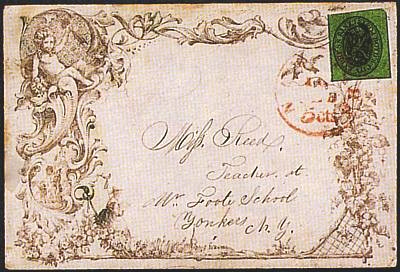 Miss Reed.
Teacher at
Mr Foote School
Yonkers N.Y.